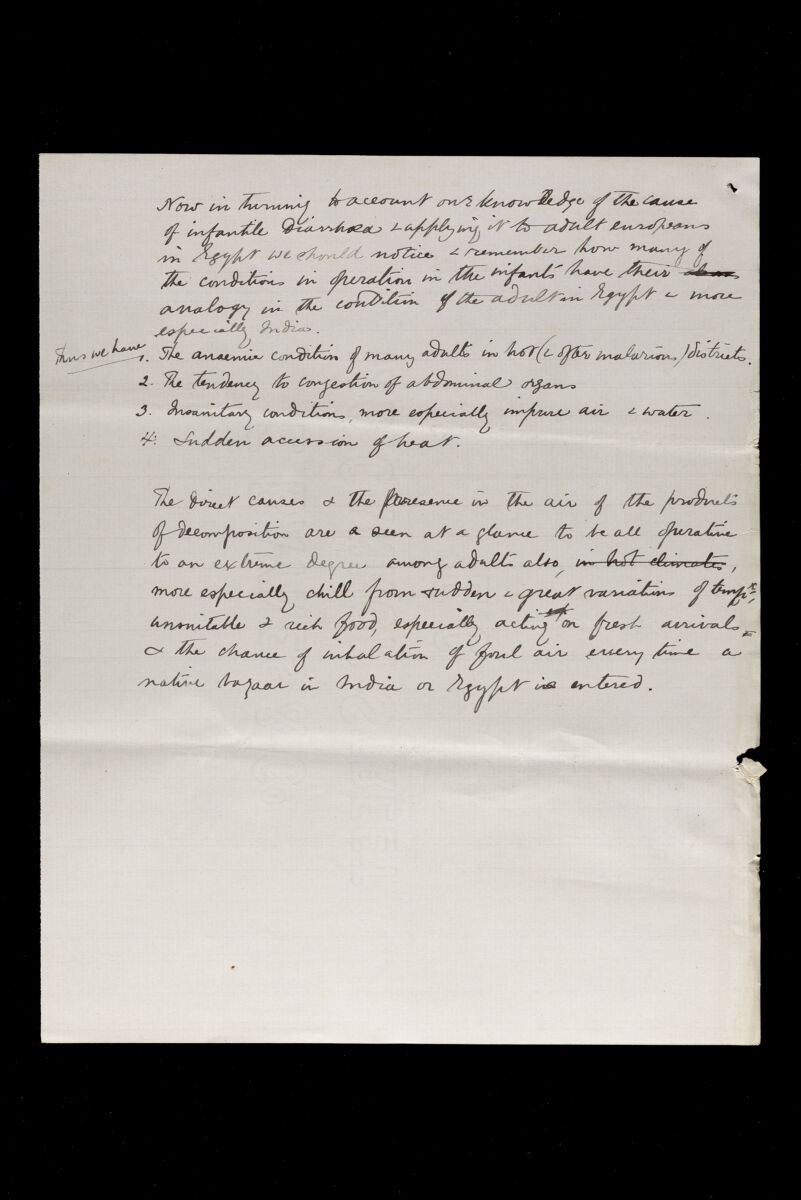 Now in turning to account our knowledge of the cause
of infantile Diarrhœa & applying it to adult europeans
in Egypt we should notice & remember how many of
the conditions in operation in the infants have their
analogy in the condition of the adult in Egypt & more
especially India.
Thus we have
1. The anaemic condition of many adults in hot (& often malarious) districts.
2. The tendency to congestion of abdominal organs
3. Insanitary conditions, more especially impure air & water.
4. Sudden accession of heat.
The Direct causes & the presence in the air of the products
of decomposition are a seen at a glance to be all operative
to an extreme degree among adults also, in hot climates,
more especially chill from sudden & great variations of tempre,
unsuitable & rich food, especially acting on fresh arrivals
& the chance of inhalation of foul air every time a
native bazaar in India or Egypt is entered.